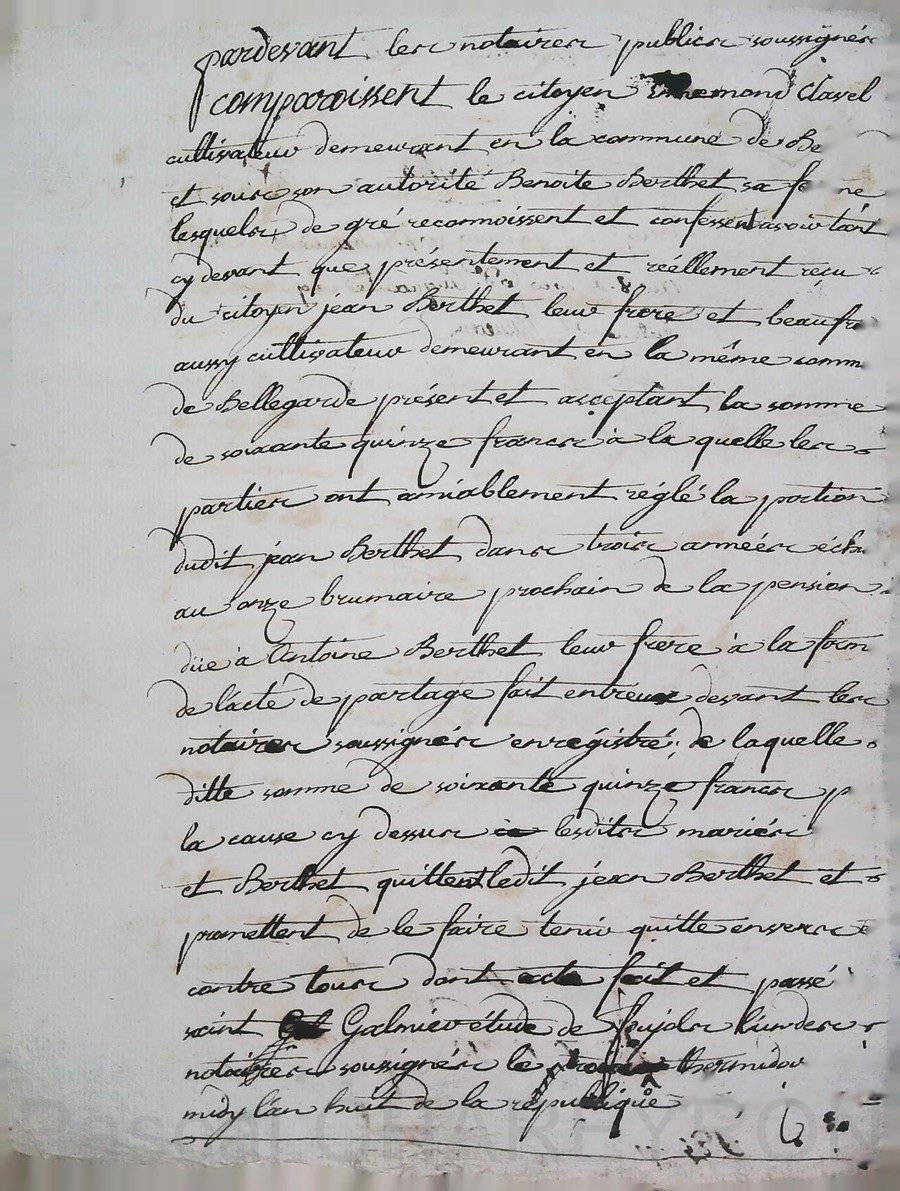 pardevant les notaires publics soussignés
comparoissent le citoyen Ennemond Clavel
cultivateur demeurant en la commune de Be
et sous son autorité Benoite Berthet sa fe ne
lesquels de gré reconnoissent et confessent avoir tant
cy devant que présentement et réellement reçu
du citoyen jean Berthet leur frere et beaufr
aussy cultivateur demeurant en la même comm
de Bellegarde présent et acceptant la somme
de soixante quinze francs à la quelle les
parties ont amiablement réglé la portion
dudit jean Berthet dans trois années échu
au onze brumaire prochain de la pension
düe à Antoine Berthet leur frere à la form
de l'acte de partage fait entreux devant les
notaires soussignés enregistré; de laquelle
ditte somme de soixante quinze francs p
la cause cy dessus lesdits mariés
et Berthet quittent ledit jean Berthet et
promettent de le faire tenir quitte envers et
contre tous dont acte fait et passé
saint Galmier étude de Pujols l'un des
notaires soussignés le thermidor
midy l'an huit de la république